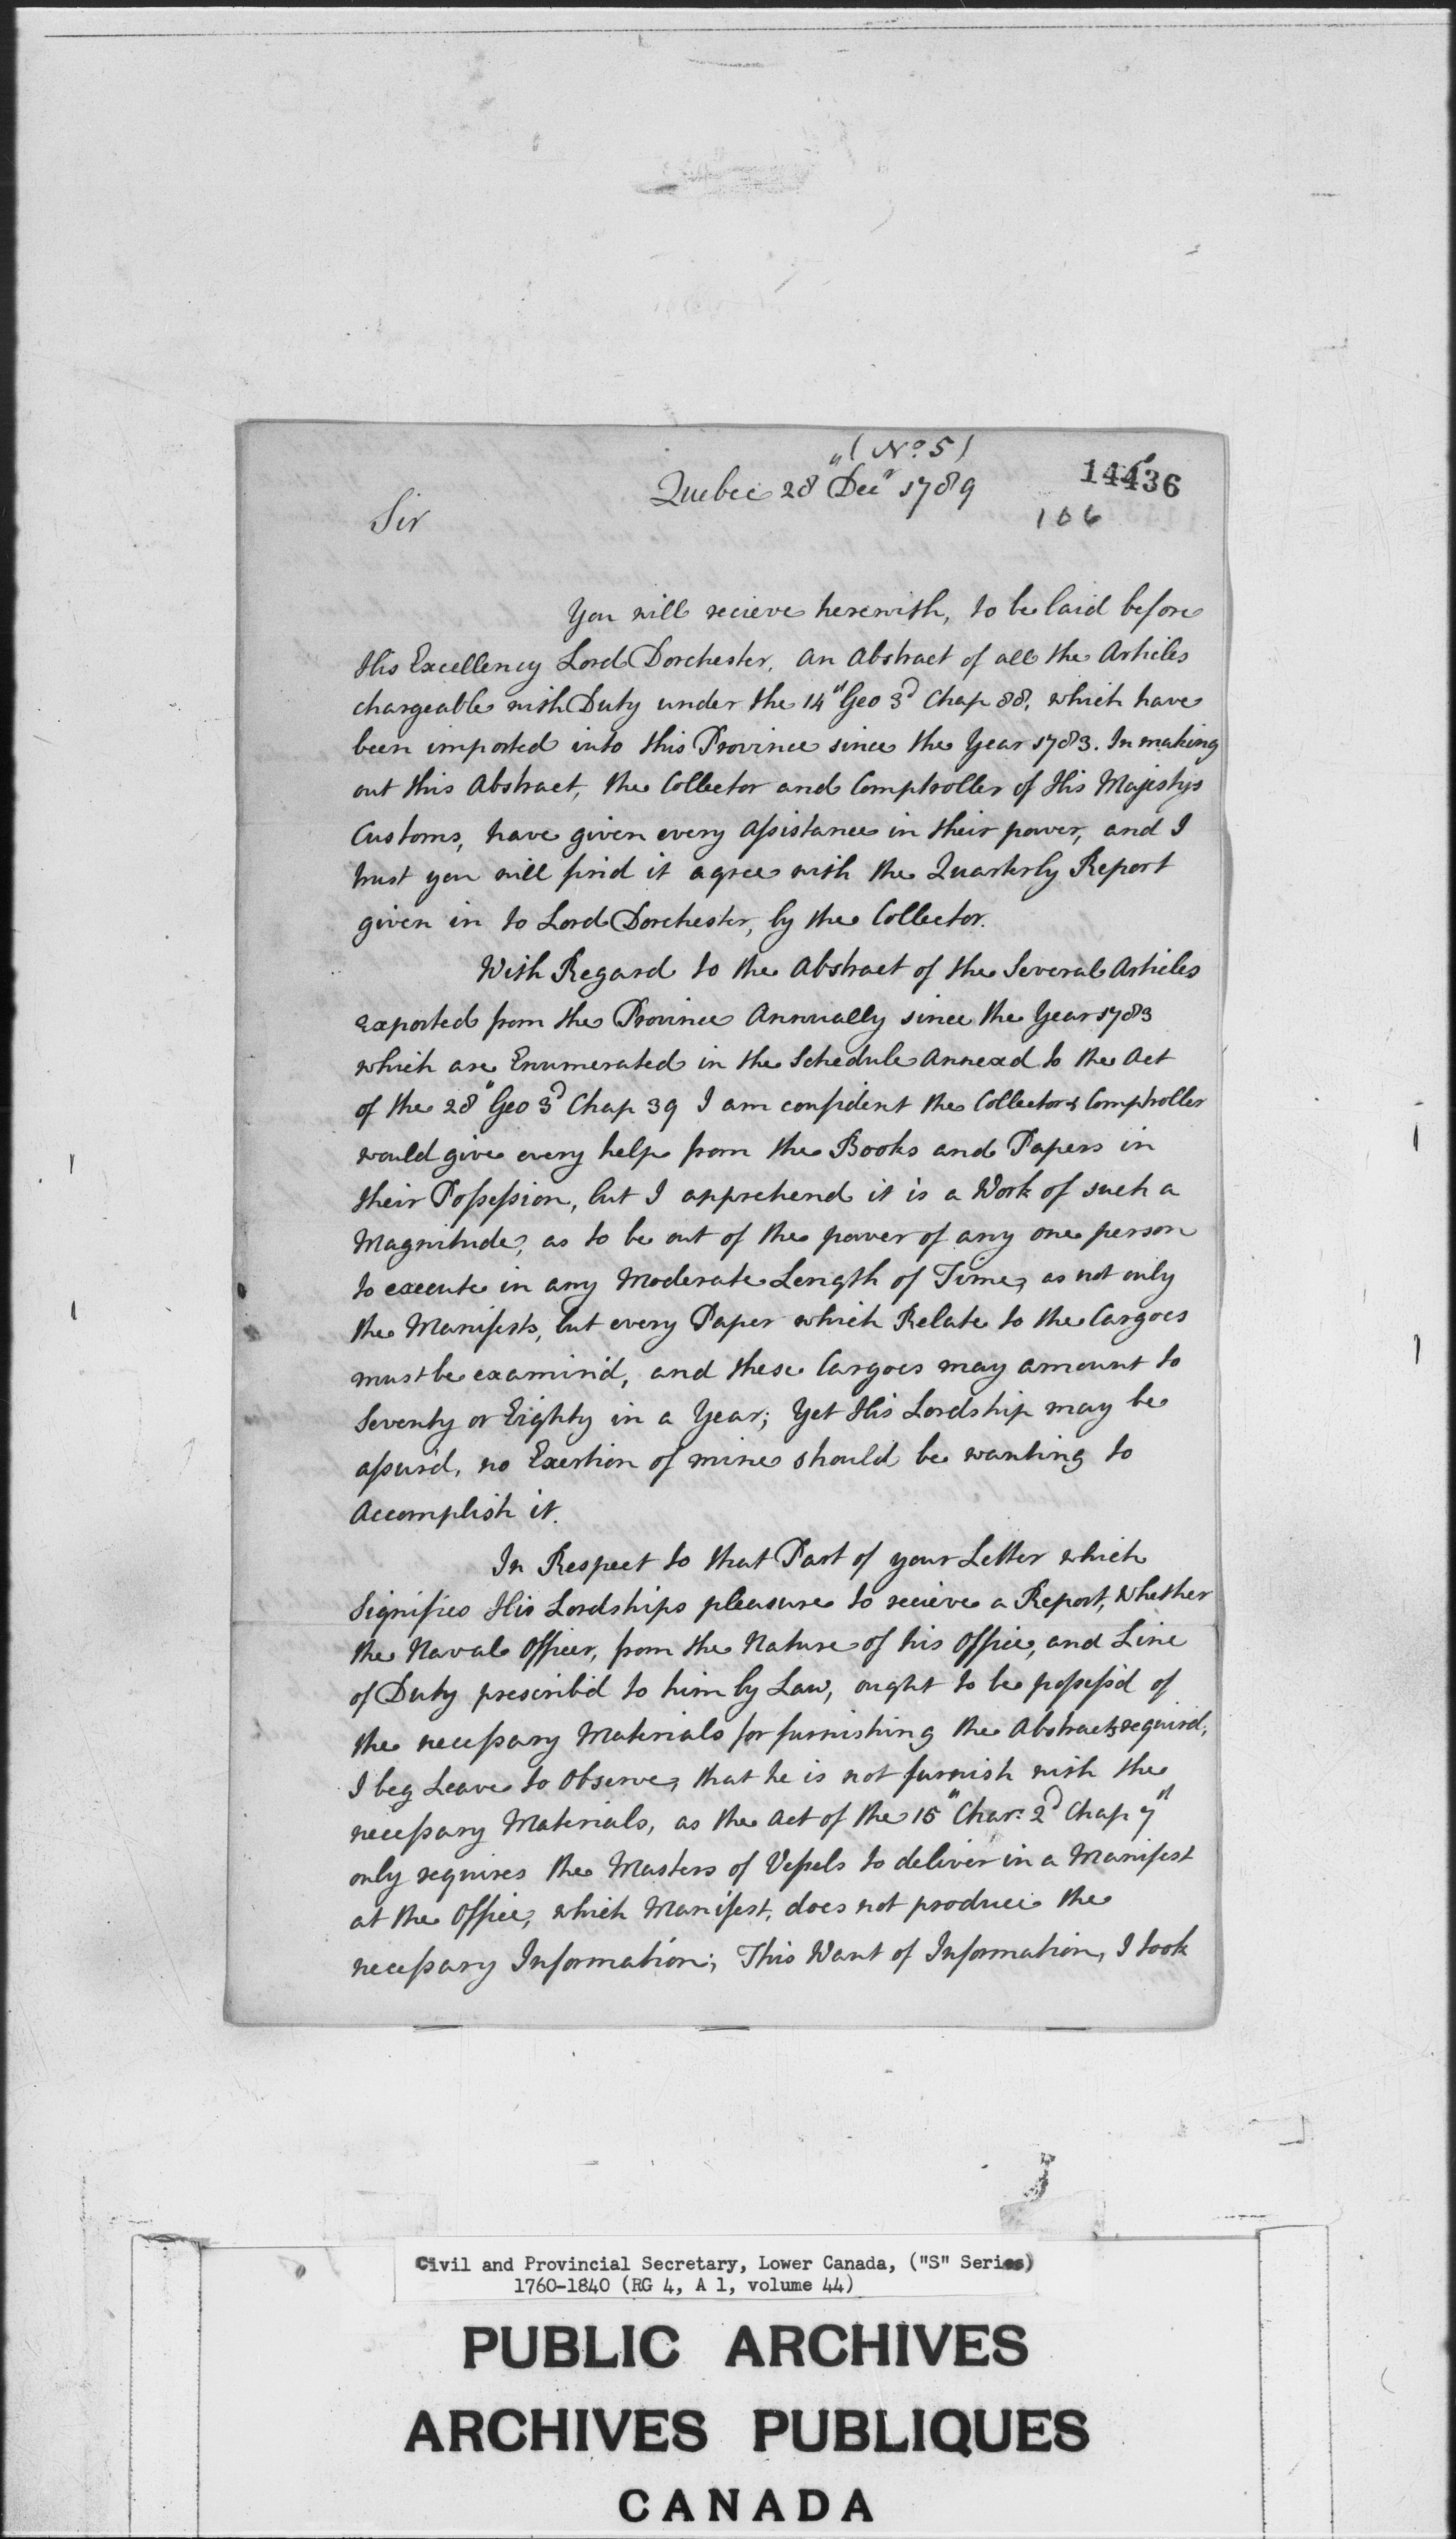 (No. 5)
Quebec 28" Decr 1789
14436
106
Sir
You will recieve herewith, to be laid before
His Excellency Lord Dorchester, an Abstract of all the Articles
chargeable with Duty under the 14" Geo 3d Chap 88, which have
been imported into this Province since the Year 1783. In making
out this Abstract, the Collector and Comptroller of His Majestys
Customs, have given every assistance in their power, and I
trust you will find it agree with the Quarterly Report
given in to Lord Dorchester, by the Collector.
With Regard to the Abstract of the Several Articles
exported from the Province Annually since the Year 1783
which are Enumerated in the Schedule Annexd to the Act
of the 28" Geo 3d Chap 39 I am confident the Collector & Comptroller
would give every help from the Books and Papers in
their Possession, but I apprehend it is a Work of such a
Magnitude, as to be out of the power of any one person
to execute in any Moderate Length of Time, as not only
the Manifests, but every Paper which Relate to the Cargoes
must be examin'd, and these Cargoes may amount to
Seventy or Eighty in a Year; Yet His Lordship may be
assur'd, no Exertion of mine should be wanting to
Accomplish it.
In Respect to that Part of your Letter which
Signifies His Lordships pleasure to recieve a Report, Whether
the Naval Officer, from the Nature of his Office, and Line
of Duty prescrib'd to him by Law, ought to be possess'd of
the necessary Materials for furnishing the Abstracts requird,
I beg Leave to Observe, that he is not furnish with the
necessary Materials, as the Act of the 15" Chars. 2d Chap 7"
only requires the Masters of Vessels to deliver in a Manifest
at the Office, which Manifest, does not produce the
necessary Information; This Want of Information, I took
Civil and Provincial Secretary, Lower Canada, ("S" Series)
1760-1840 (RG 4, A 1, volume 44)
PUBLIC ARCHIVES
ARCHIVES PUBLIQUES
CANADA